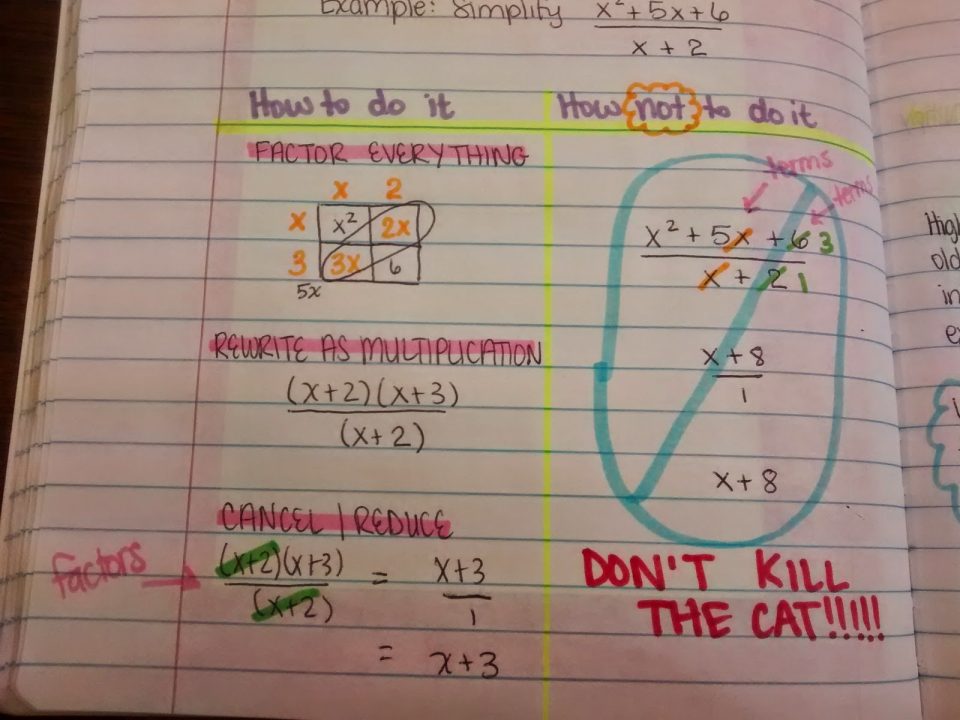 Example: Simplify x² + 5x + 6
x + 2
How to do it
FACTOR EVERYTHING
x 2
x x² 2x
3 3x 6
5x
REWRITE AS MULTIPLICATION
(x+2)(x+3)
(x+2)
CANCEL / REDUCE
Factors
(x+2)(x+3) = x+3
(x+2) 1
= x+3
How not to do it
terms
terms
x² + 5x + 6 3
x + 2 1
x + 8
1
x + 8
DON'T KILL
THE CAT!!!!!
old
in